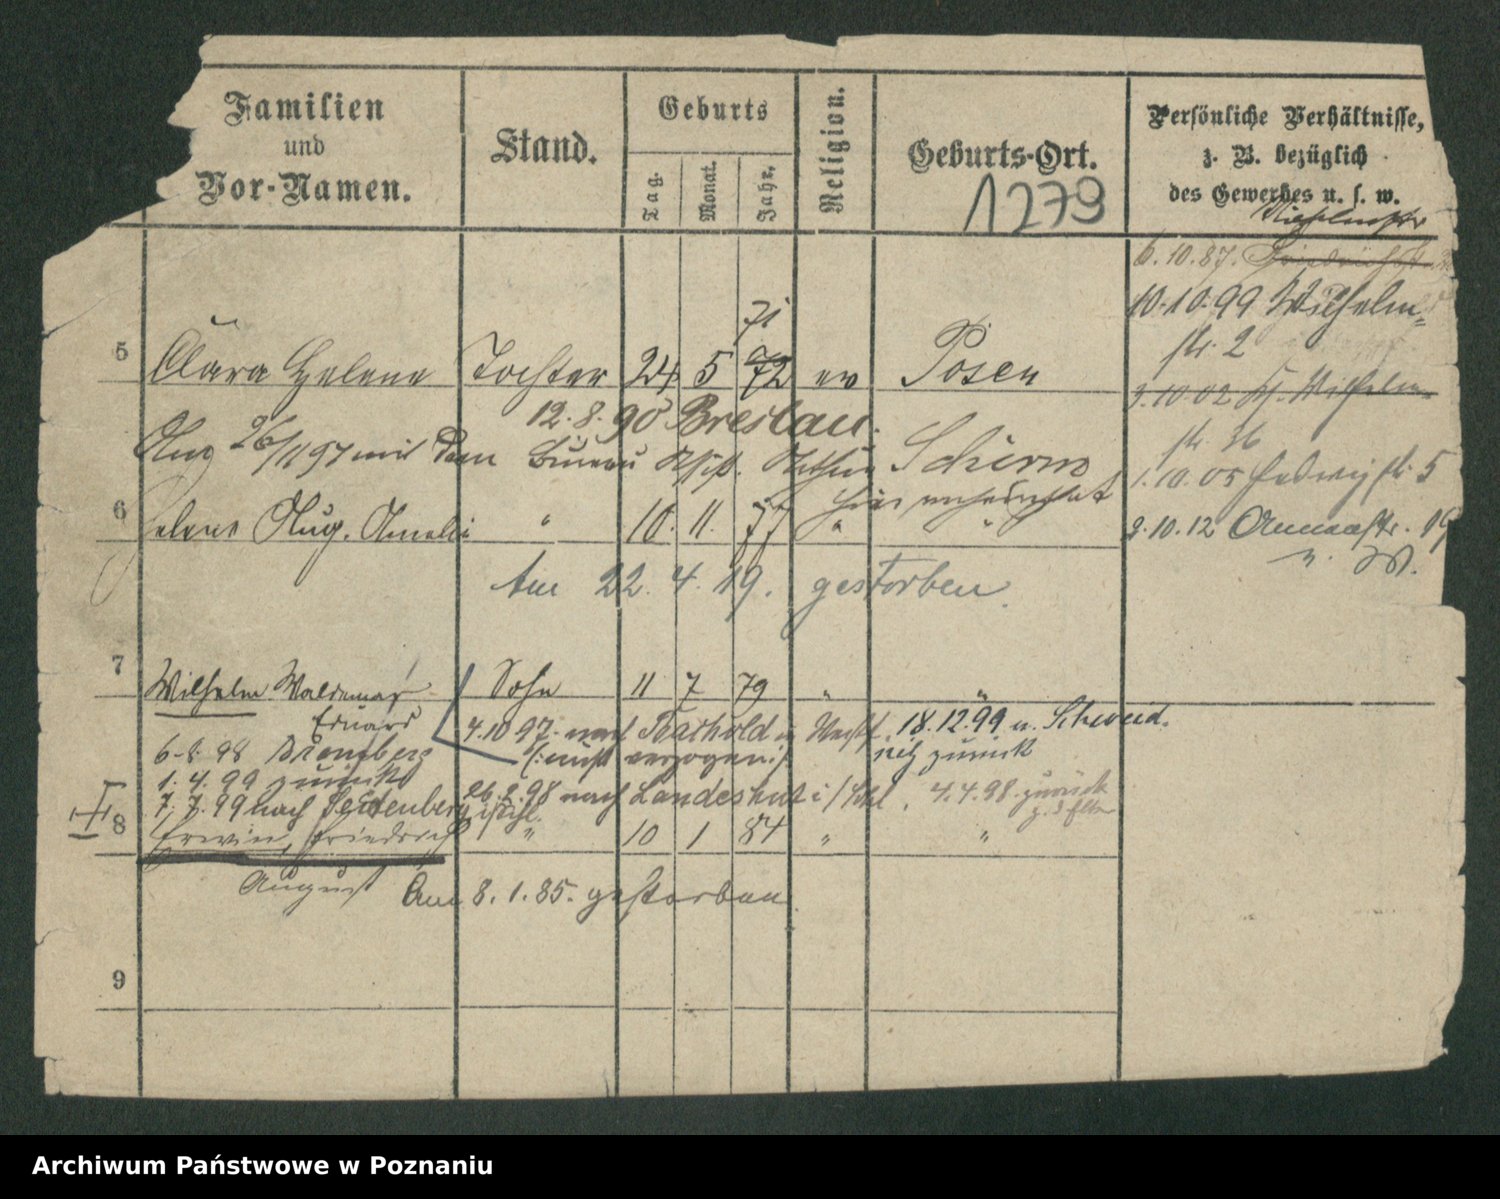 Familien
und
Vor-Namen.
Stand.
Geburts
Tag.
Monat.
Jahr.
Religion.
Geburts-Ort.
1279
Persönliche Verhältnisse,
z. B. bezüglich
des Gewerbes u. s. w.
6.10.87.
10.10.99 Wilhelm-
str. 2
3.10.02 Wilhelm
str. 26
1.10.05 Hedwigstr. 5
2.10.12 19
71
5 Clara Helene Tochter 24 5 72 ev Posen
12.8.90 Breslau.
26/11 97 mit dem Schirm
hier verheirathet
6 Helene Aug. Amalie " 10. 11. 77 " "
Am 22. 4. 19. gestorben.
7 Wilhelm Waldemar Sohn 11 7 79 " "
Eduard
4.10 97. nach 18.12.99 u.
6.8.98 Bromberg (: nicht verzogen :) zurück
1.4.99 zurück
7.7.99 nach 26.2.98 nach Landeshut i/Schl. 4.4.98. zurück
8 Erwin, Friedrich " 10 1 84 " "
August Am 8.1.85. gestorben.
9
Archiwum Państwowe w Poznaniu